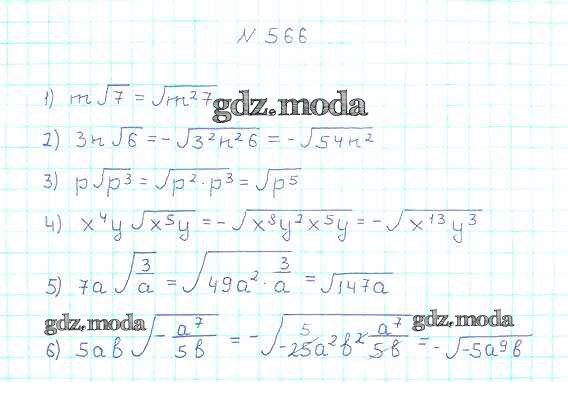 N 566
1) m√7 = √m²7
gdz.moda
2) 3n√6 = -√3²n²6 = -√54n²
3) p√p³ = √p²·p³ = √p⁵
4) x⁴y√x⁵y = -√x⁸y²x⁵y = -√x¹³y³
5) 7a√3/a = √49a²·3/a = √147a
gdz.moda
gdz.moda
6) 5ab√-a⁷/5b = -√-25a²b²a⁷/5b = -√-5a⁹b
5